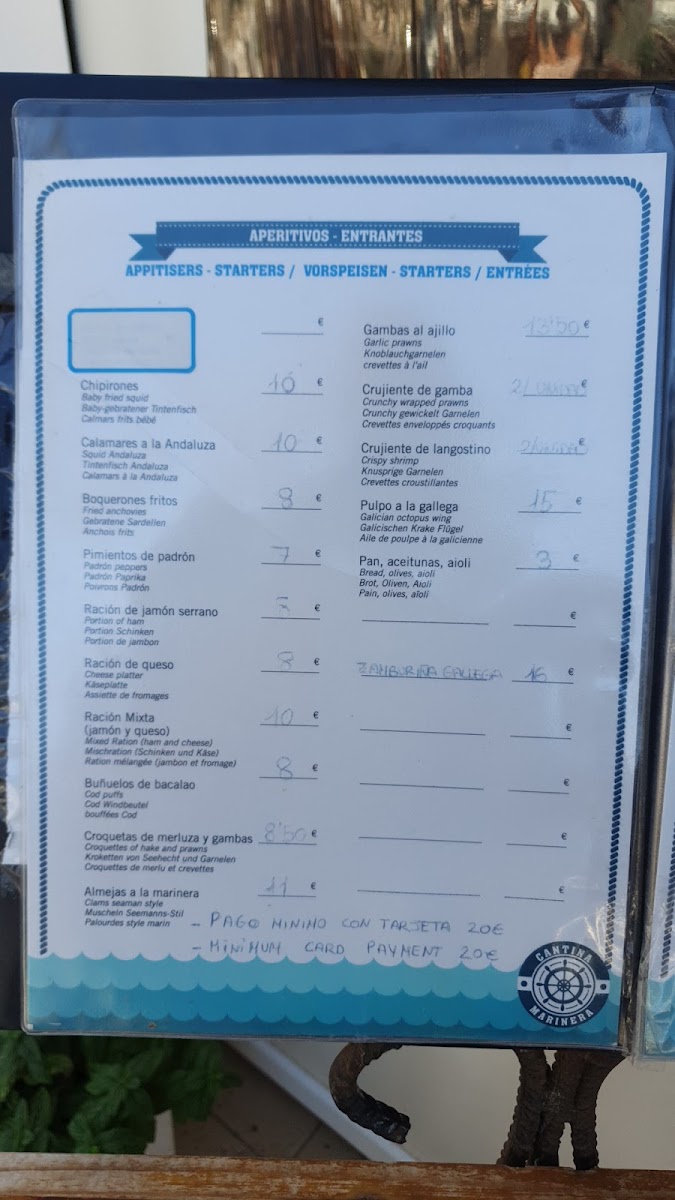 APERITIVOS - ENTRANTES
APPITISERS - STARTERS / VORSPEISEN - STARTERS / ENTRÉES
€
Chipirones 10 €
Baby fried squid
Baby-gebratener Tintenfisch
Calmars frits bébé
Calamares a la Andaluza 10 €
Squid Andaluza
Tintenfisch Andaluza
Calamars à la Andaluza
Boquerones fritos 8 €
Fried anchovies
Gebratene Sardellen
Anchois frits
Pimientos de padrón 7 €
Padrón peppers
Padrón Paprika
Poivrons Padrón
Ración de jamón serrano €
Portion of ham
Portion Schinken
Portion de jambon
Ración de queso 8 €
Cheese platter
Käseplatte
Assiette de fromages
Ración Mixta 10 €
(jamón y queso)
Mixed Ration (ham and cheese)
Mischration (Schinken und Käse)
Ration mélangée (jambon et fromage)
Buñuelos de bacalao 8 €
Cod puffs
Cod Windbeutel
bouffées Cod
Croquetas de merluza y gambas 8'50 €
Croquettes of hake and prawns
Kroketten von Seehecht und Garnelen
Croquettes de merlu et crevettes
Almejas a la marinera 11 €
Clams seaman style
Muscheln Seemanns-Stil
Palourdes style marin
Gambas al ajillo 13'50 €
Garlic prawns
Knoblauchgarnelen
crevettes à l'ail
Crujiente de gamba 2/ €
Crunchy wrapped prawns
Crunchy gewickelt Garnelen
Crevettes enveloppés croquants
Crujiente de langostino €
Crispy shrimp
Knusprige Garnelen
Crevettes croustillantes
Pulpo a la gallega 15 €
Galician octopus wing
Galicischen Krake Flügel
Aile de poulpe à la galicienne
Pan, aceitunas, aioli 3 €
Bread, olives, aioli
Brot, Oliven, Aioli
Pain, olives, aïoli
€
ZAMBURIÑA GALLEGA 16 €
€
€
€
€
- PAGO MINIMO CON TARJETA 20€
- MINIMUM CARD PAYMENT 20€
CANTINA
MARINERA